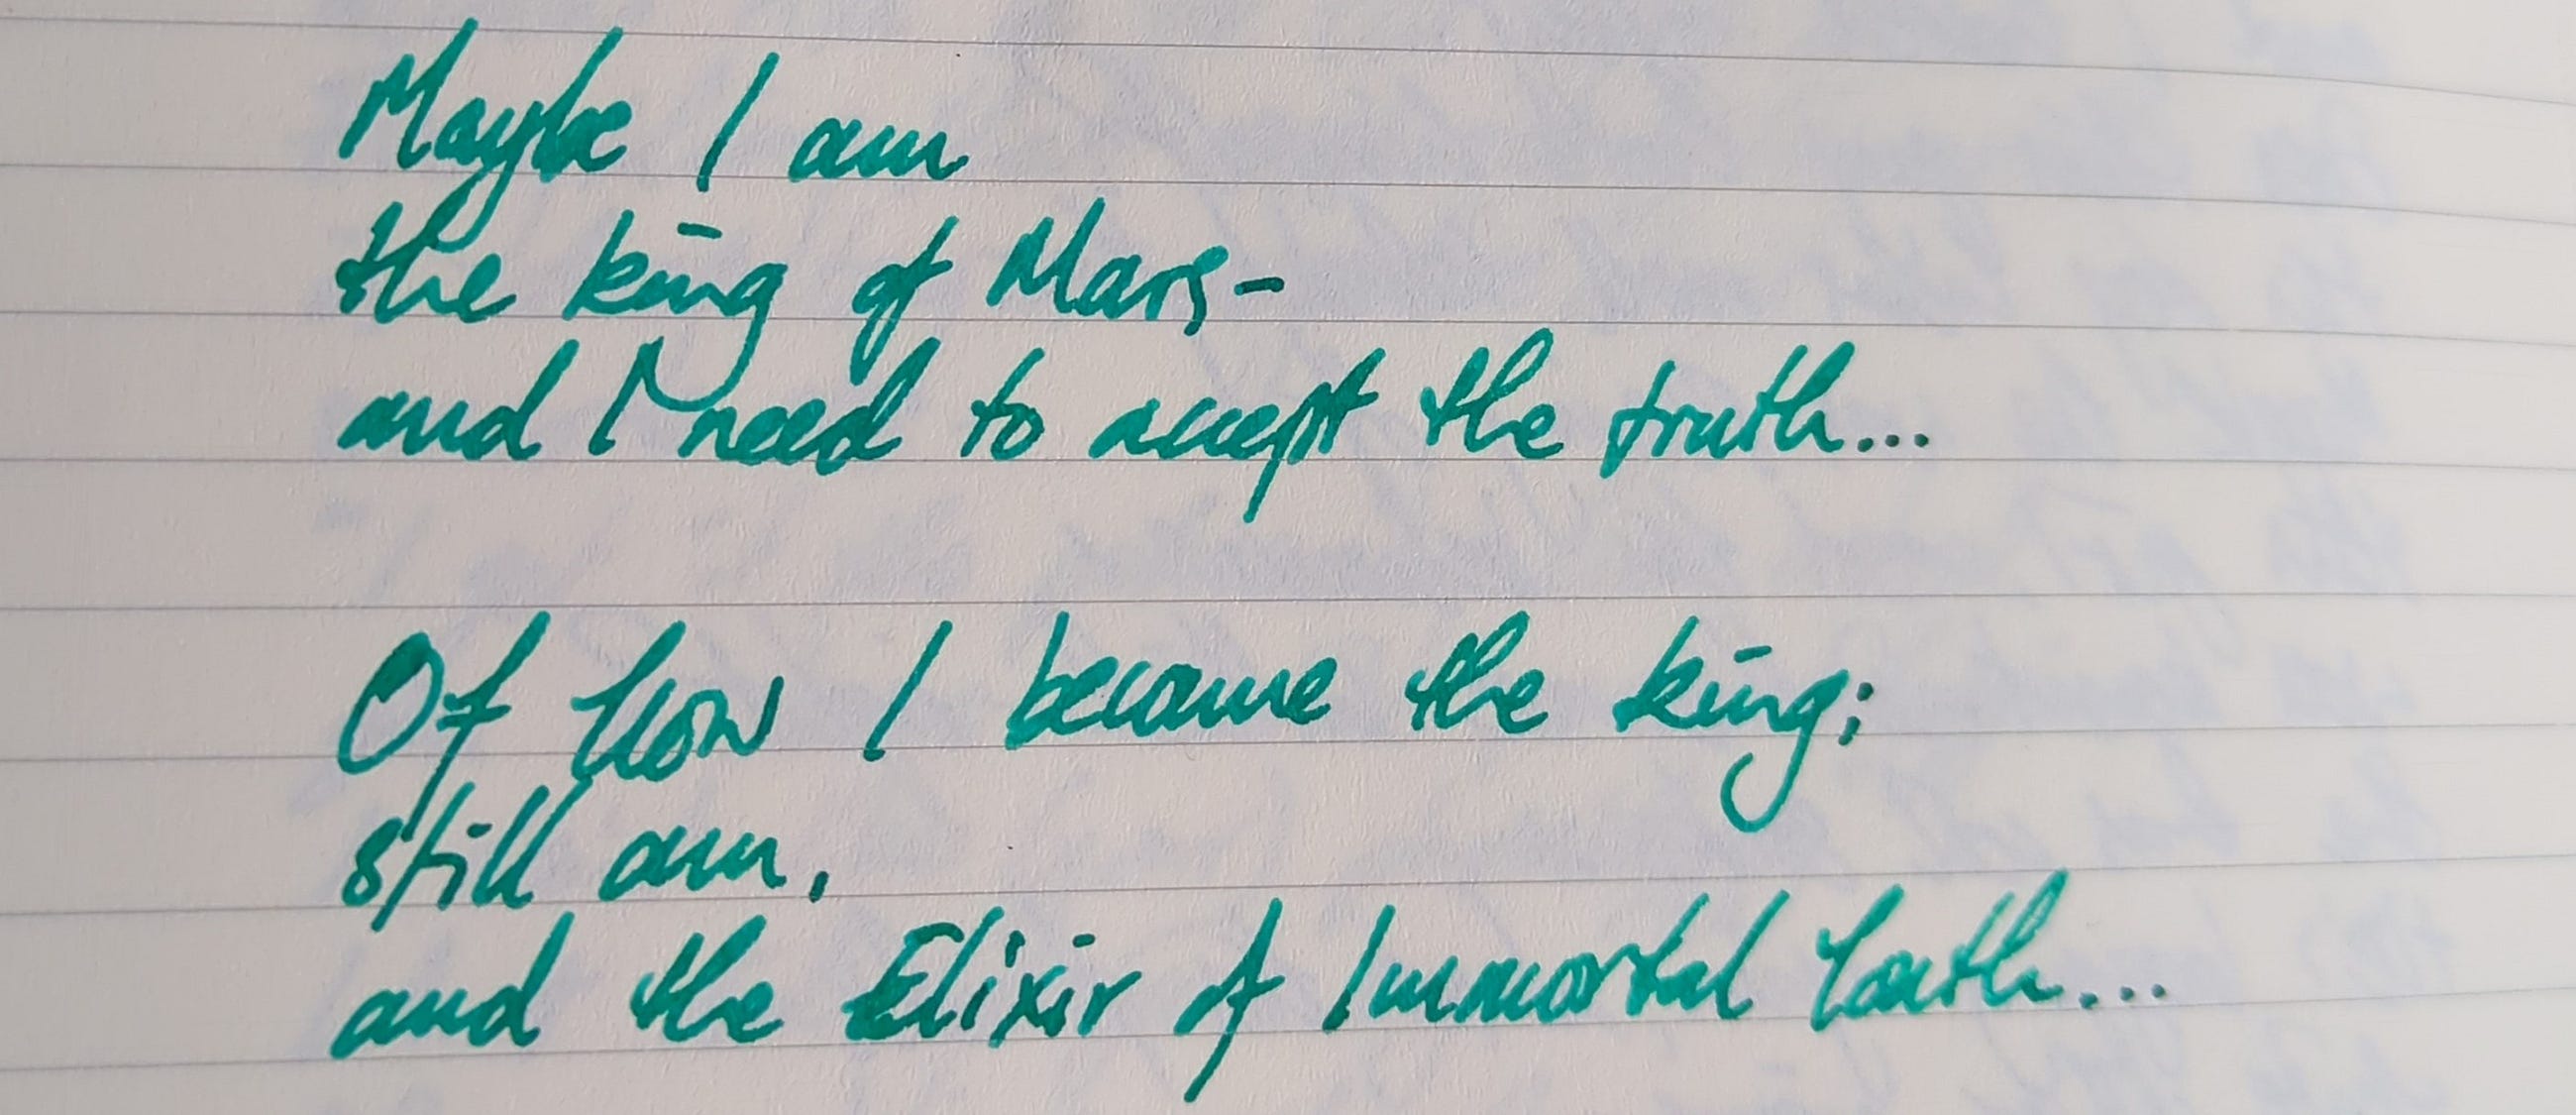 Maybe I am
the king of Mars-
and I need to accept the truth...
Of how I became the king;
still am,
and the Elixir of Immortal